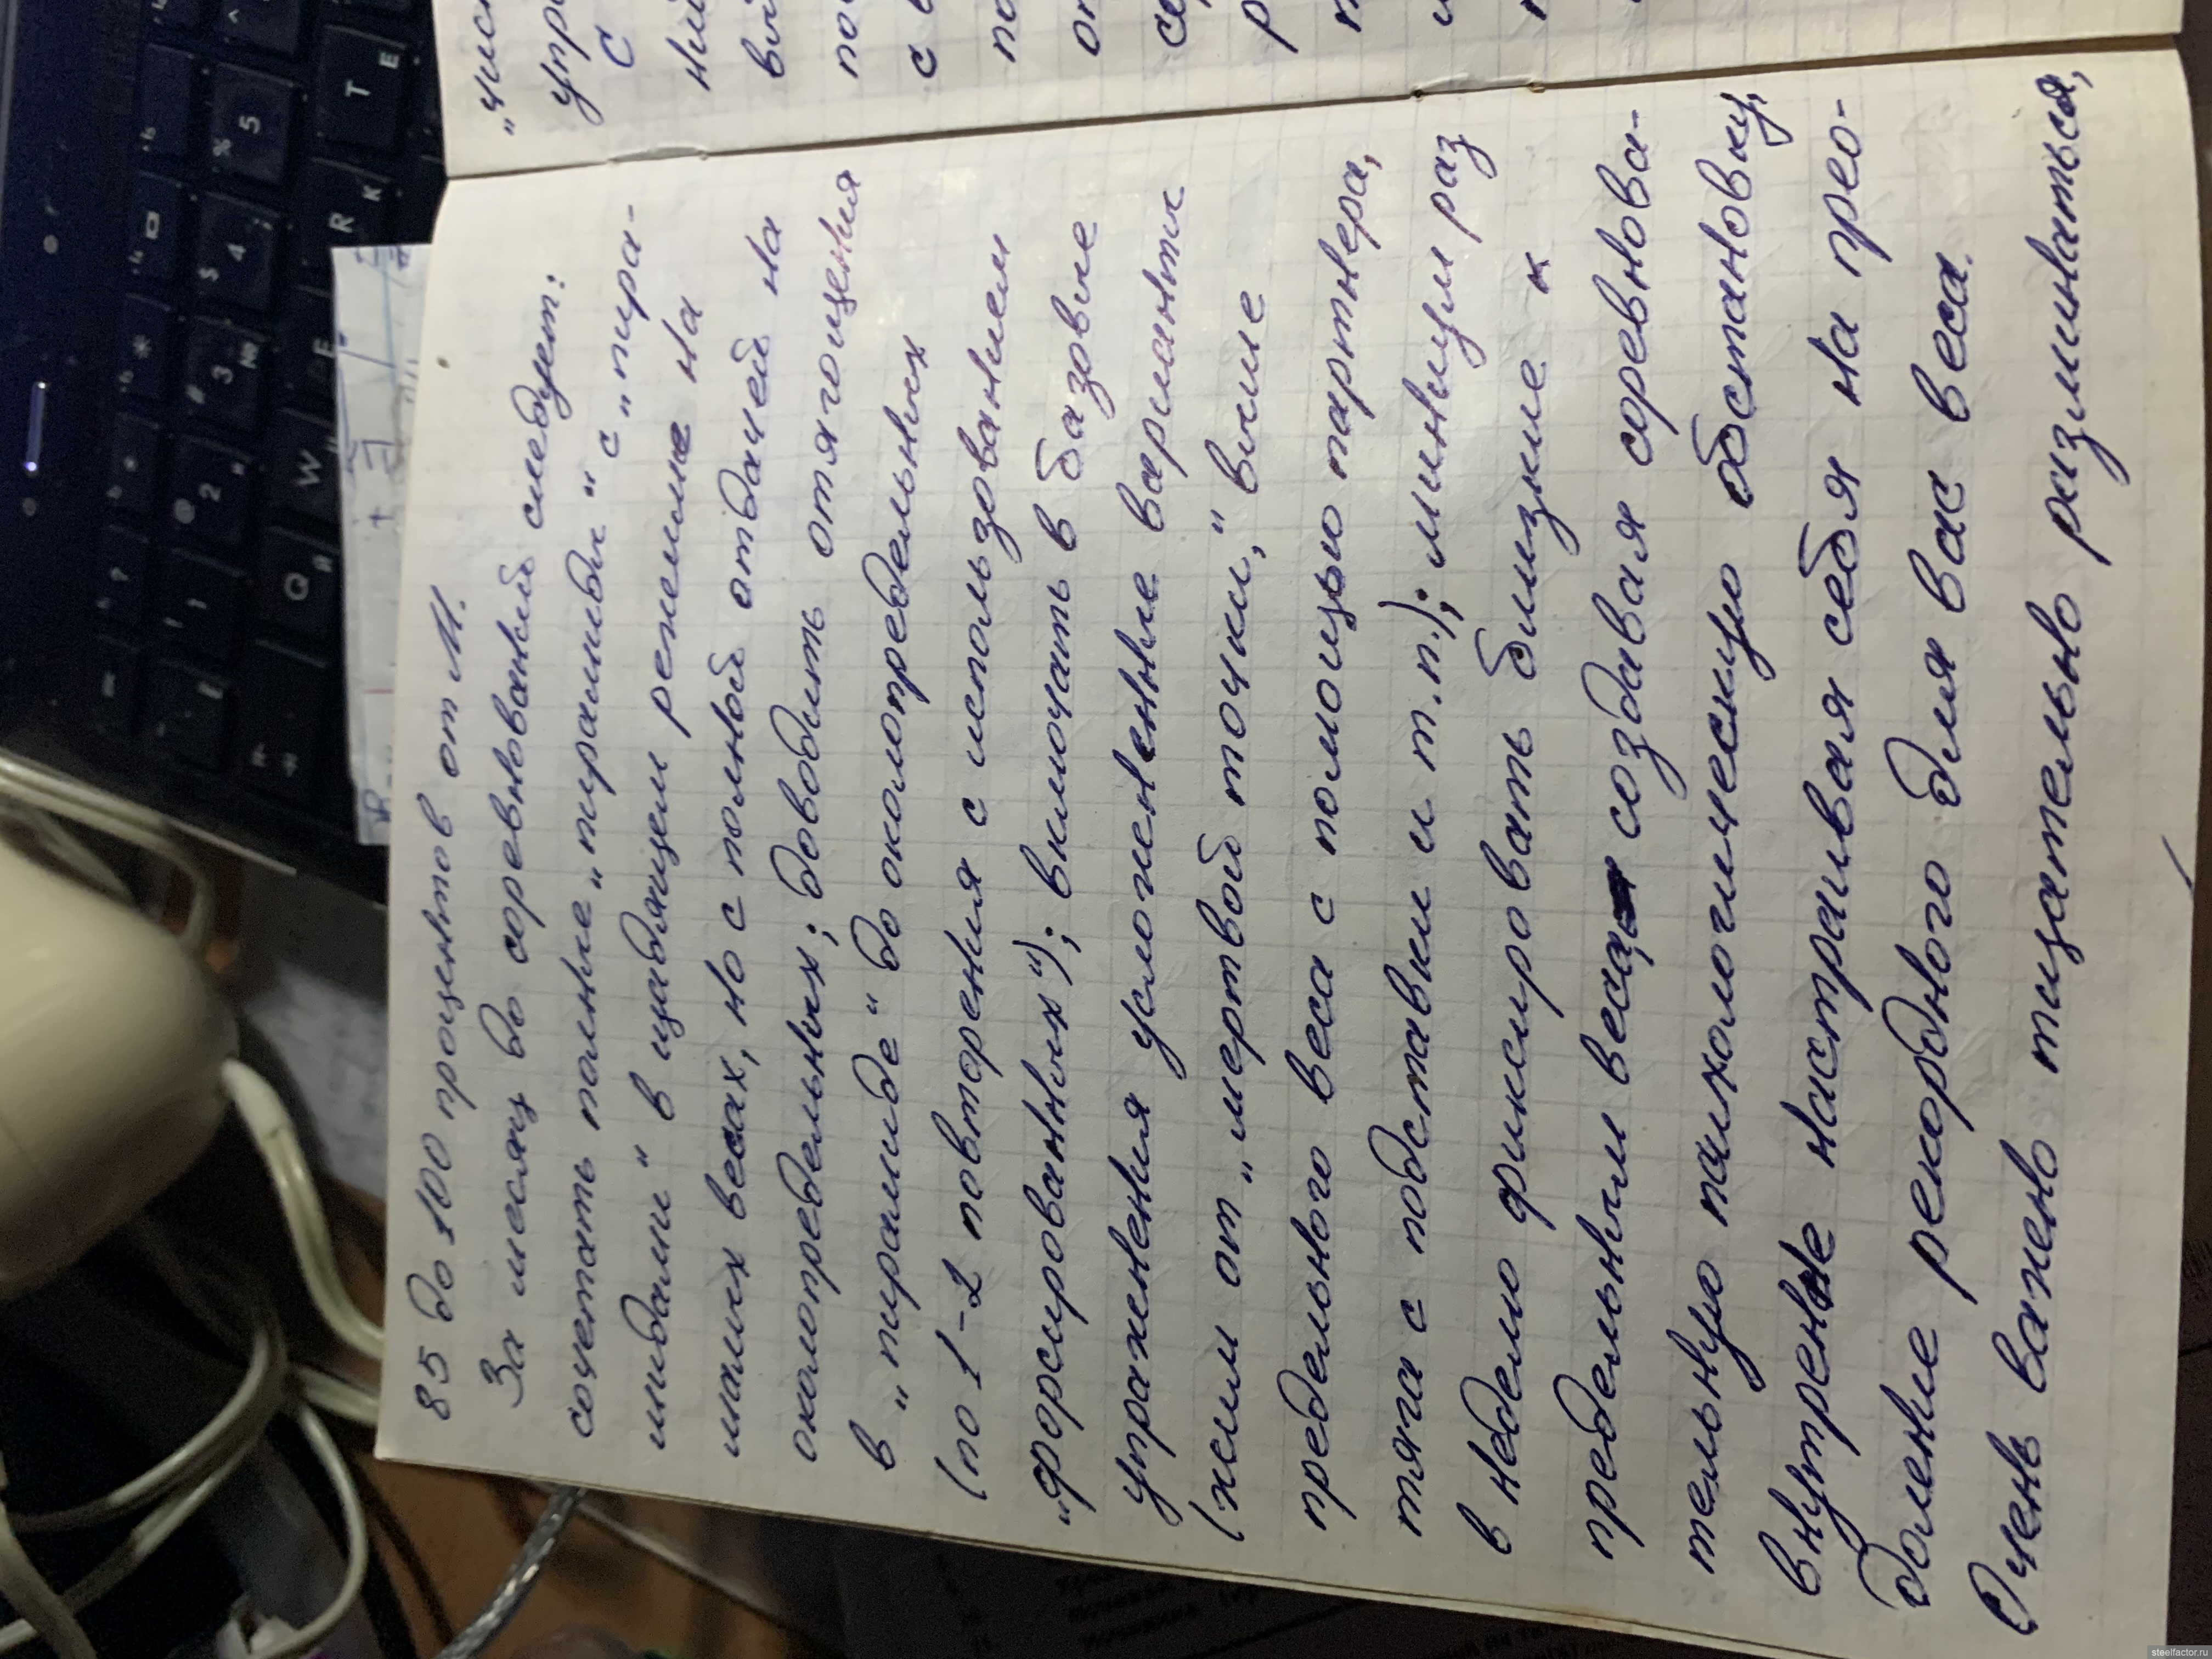 85 до 100 процентов от М.
За месяц до соревнований следует:
сочетать полные „пирамиды" с „пира-
мидами" в щадящем режиме на
малых весах, но с полной отдачей на
околопредельных; доводить отягощения
в „пирамиде" до околопредельных
(по 1-2 повторения с использованием
„форсированных"); включать в базовые
упражнения усложненные варианты
(жим от „мертвой точки," вые
предельного веса с помощью партнера,
тяга с подставки и т.п.); минимум раз
в неделю фиксировать близкие к
предельным веса, создавая соревнова-
тельную психологическую обстановку,
внутренне настраивая себя на прео-
доление рекордного для вас веса.
Очень важно тщательно разминаться,
„чис
упр
с
ний
вы
по
с в
по
от
се
р
% 5
T Е
$ 4 ;
R К
# 3 №
E
@ 2 "
W
! 1
Q Й
steelfactor.ru